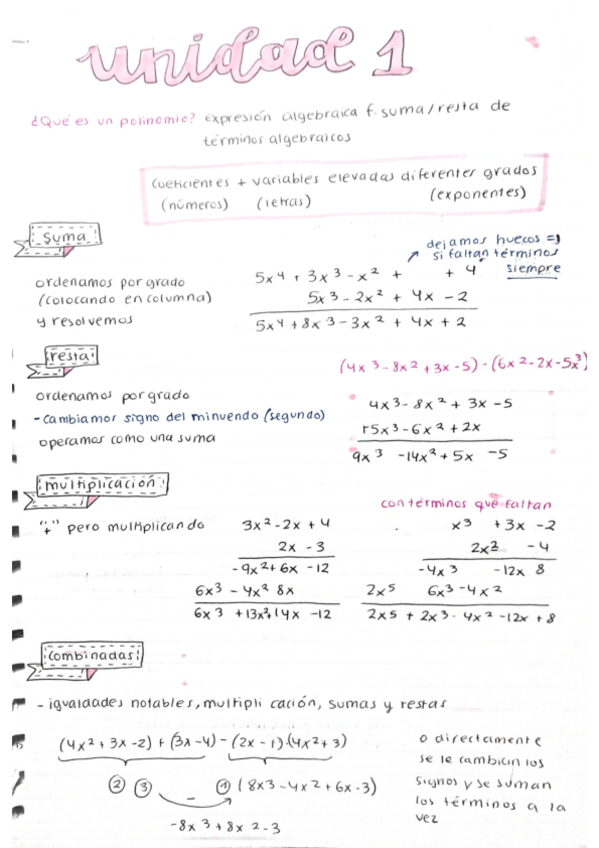 unidad 1
¿Qué es un polinomio? Expresión algebraica f. suma/resta de
términos algebraicos
Coeficientes + variables elevadas diferentes grados
(números) (letras) (exponentes)
suma
dejamos huecos =>
si faltan términos
siempre
ordenamos por grado
(colocando en columna)
y resolvemos
5x⁴ + 3x³ - x² + + 4
5x³ - 2x² + 4x - 2
5x⁴ + 8x³ - 3x² + 4x + 2
resta
(4x³ - 8x² + 3x - 5) - (6x² - 2x - 5x³)
ordenamos por grado
- cambiamos signo del minuendo (segundo)
operamos como una suma
4x³ - 8x² + 3x - 5
+5x³ - 6x² + 2x
9x³ - 14x² + 5x - 5
multiplicación
con términos que faltan
"+" pero multiplicando
3x² - 2x + 4
2x - 3
- 9x² + 6x - 12
6x³ - 4x² 8x
6x³ + 13x² 14x - 12
x³ + 3x - 2
2x² - 4
-4x³ - 12x 8
2x⁵ 6x³ - 4x²
2x⁵ + 2x³ - 4x² - 12x + 8
combinadas
- igualdades notables, multipli cación, sumas y restas
(4x² + 3x - 2) + (3x - 4) - (2x - 1)·(4x² + 3)
② ③ - ① (8x³ - 4x² + 6x - 3)
-8x³ + 8x² - 3
o directamente
se le cambian los
signos y se suman
los términos a la
vez